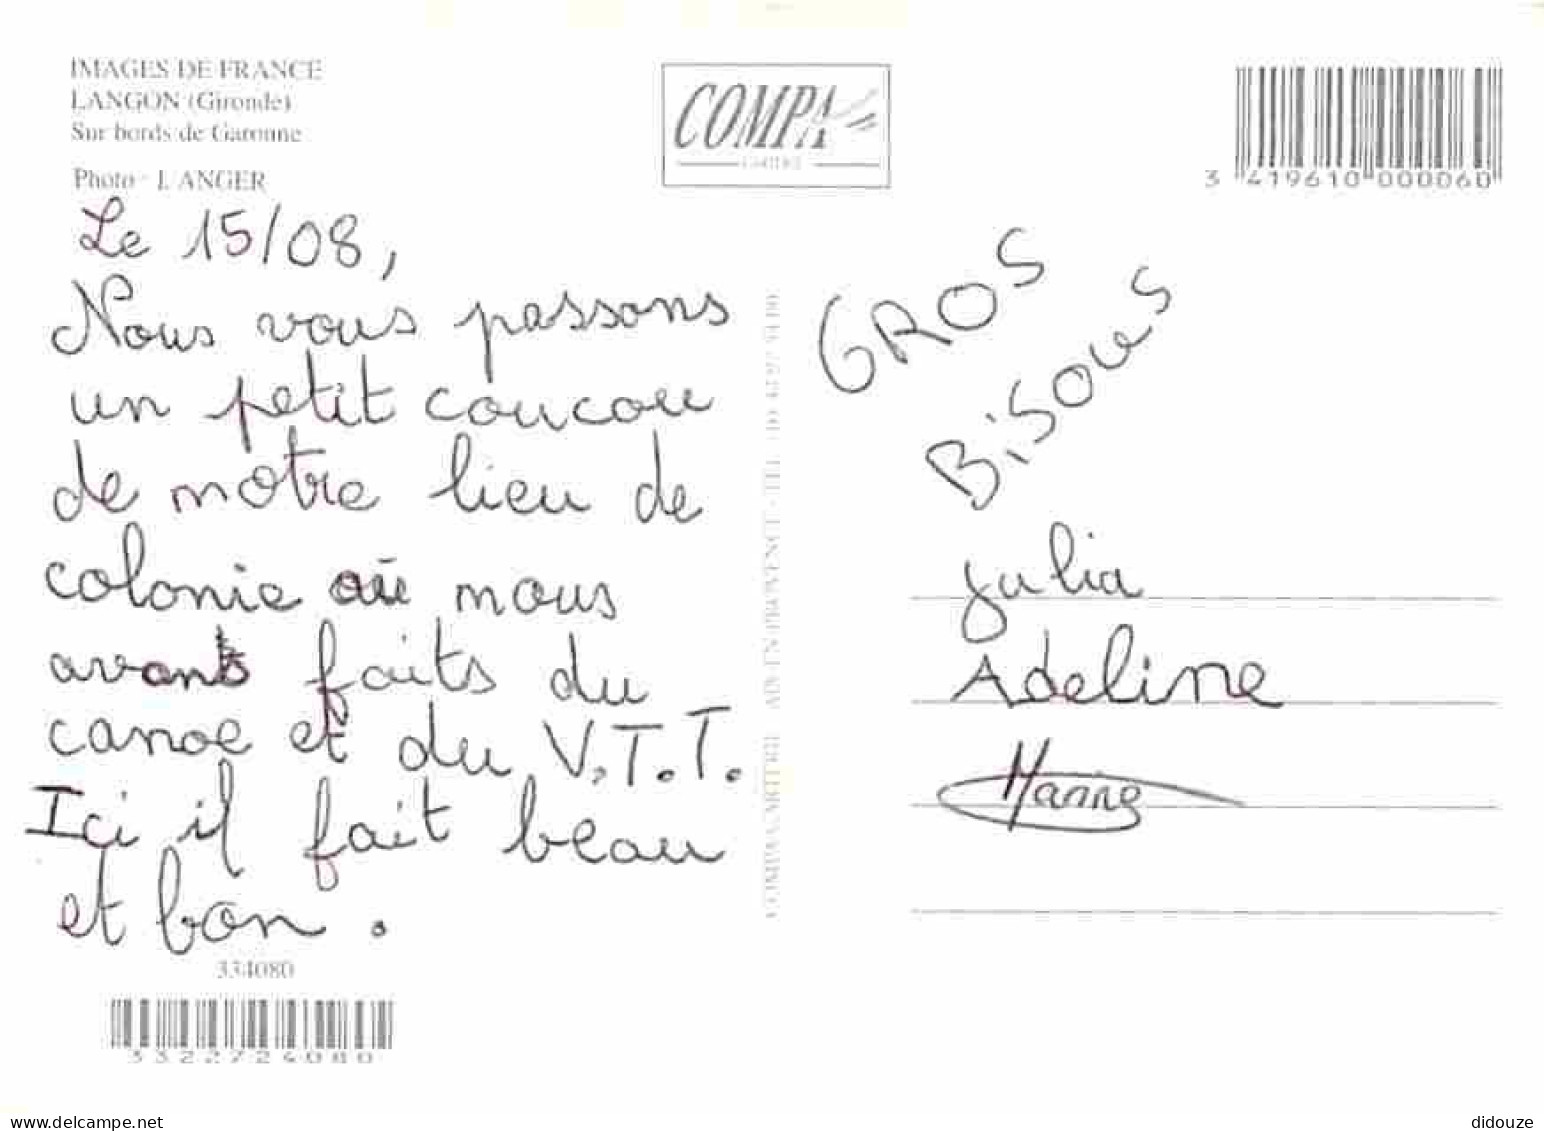 IMAGES DE FRANCE
LANGON (Gironde)
Sur bords de Garonne
Photo - L'ANGER
COMPA
3 419610 000060
Le 15/08,
Nous vous passons
un petit coucou
de notre lieu de
colonie où nous
avons faits du
canoe et du V.T.T.
Ici il fait beau
et bon.
334080
3322724080
GROS
BiSOUS
Julia
Adeline
Marine
delcampe.net
didouze